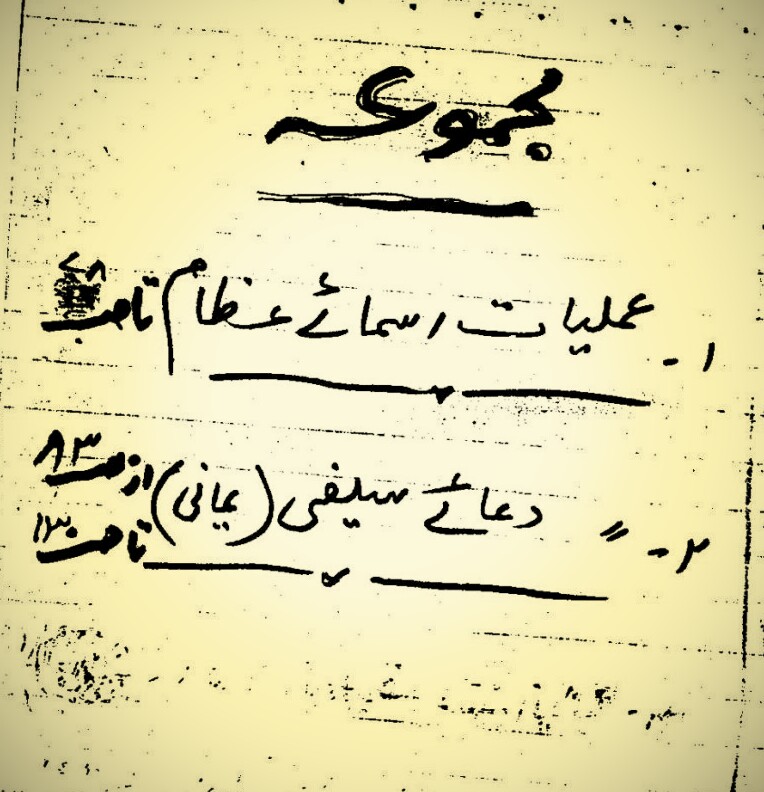 مجموعہ
۱- عملیات اسمائے عظام تا صـ ۷۸
۲- " دعائے سیفی (یمانی) از صـ ۸۳
تا صـ ۱۳۰